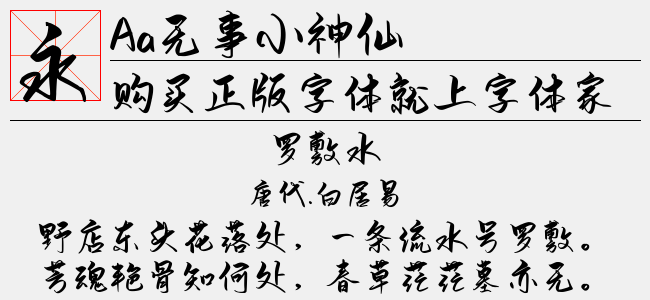 永
Aa无事小神仙
购买正版字体就上字体家
罗敷水
唐代.白居易
野店东头花落处，一条流水号罗敷。
芳魂艳骨知何处，春草茫茫墓亦无。